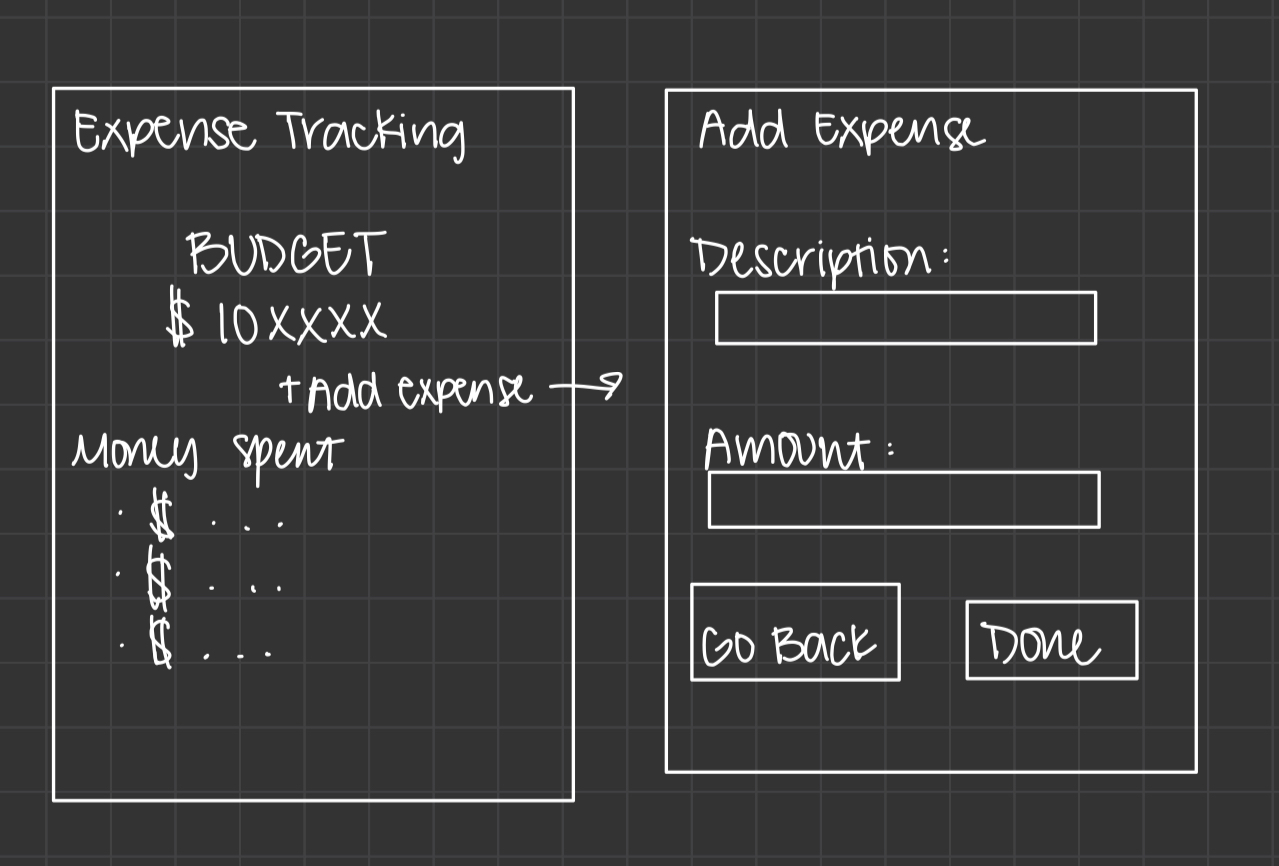 Expense Tracking
BUDGET
$ 10XXXX
+Add expense →
Money spent
· $ . . .
· $ . . .
· $ . . .
Add Expense
Description:
Amount:
Go Back
Done